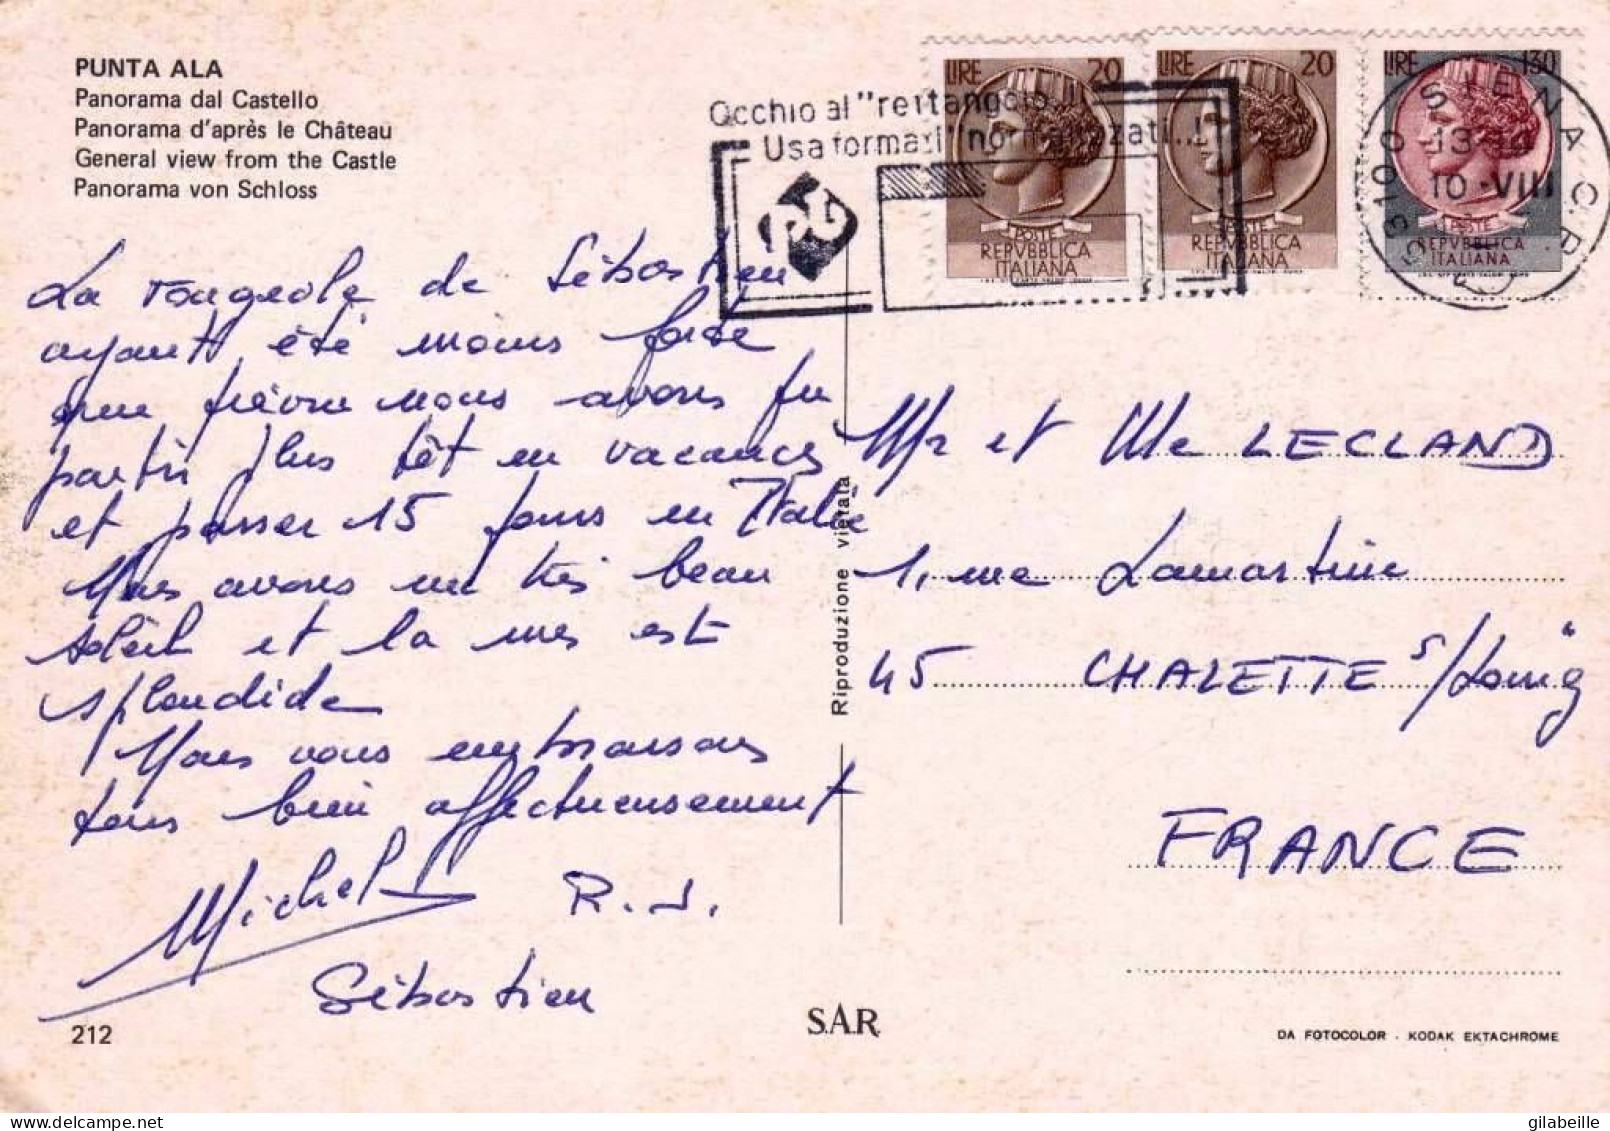 PUNTA ALA
Panorama dal Castello
Panorama d'après le Château
General view from the Castle
Panorama von Schloss
La rougeole de Sébastien
ayant été moins forte
que prévue nous avons pu
partir plus tôt en vacances
et passer 15 jours en Italie
Nous avons un très beau
soleil et la mer est
splendide
Nous vous embrassons
tous bien affectueusement
Michel R. J.
Sébastien
212
LIRE 20
POSTE
REPVBBLICA
ITALIANA
LIRE 20
REPVBBLICA
ITALIANA
LIRE 130
POSTE
REPVBBLICA
ITALIANA
Occhio al "rettangolo
Usa formati "normalizzati..!
53100 SIENA C.P.
10 VIII
Mr et Me LECLAND
1, rue Lamartine
45 CHALETTE s/Loing
FRANCE
Riproduzione vietata
S.A.R.
DA FOTOCOLOR - KODAK EKTACHROME
gilabeille